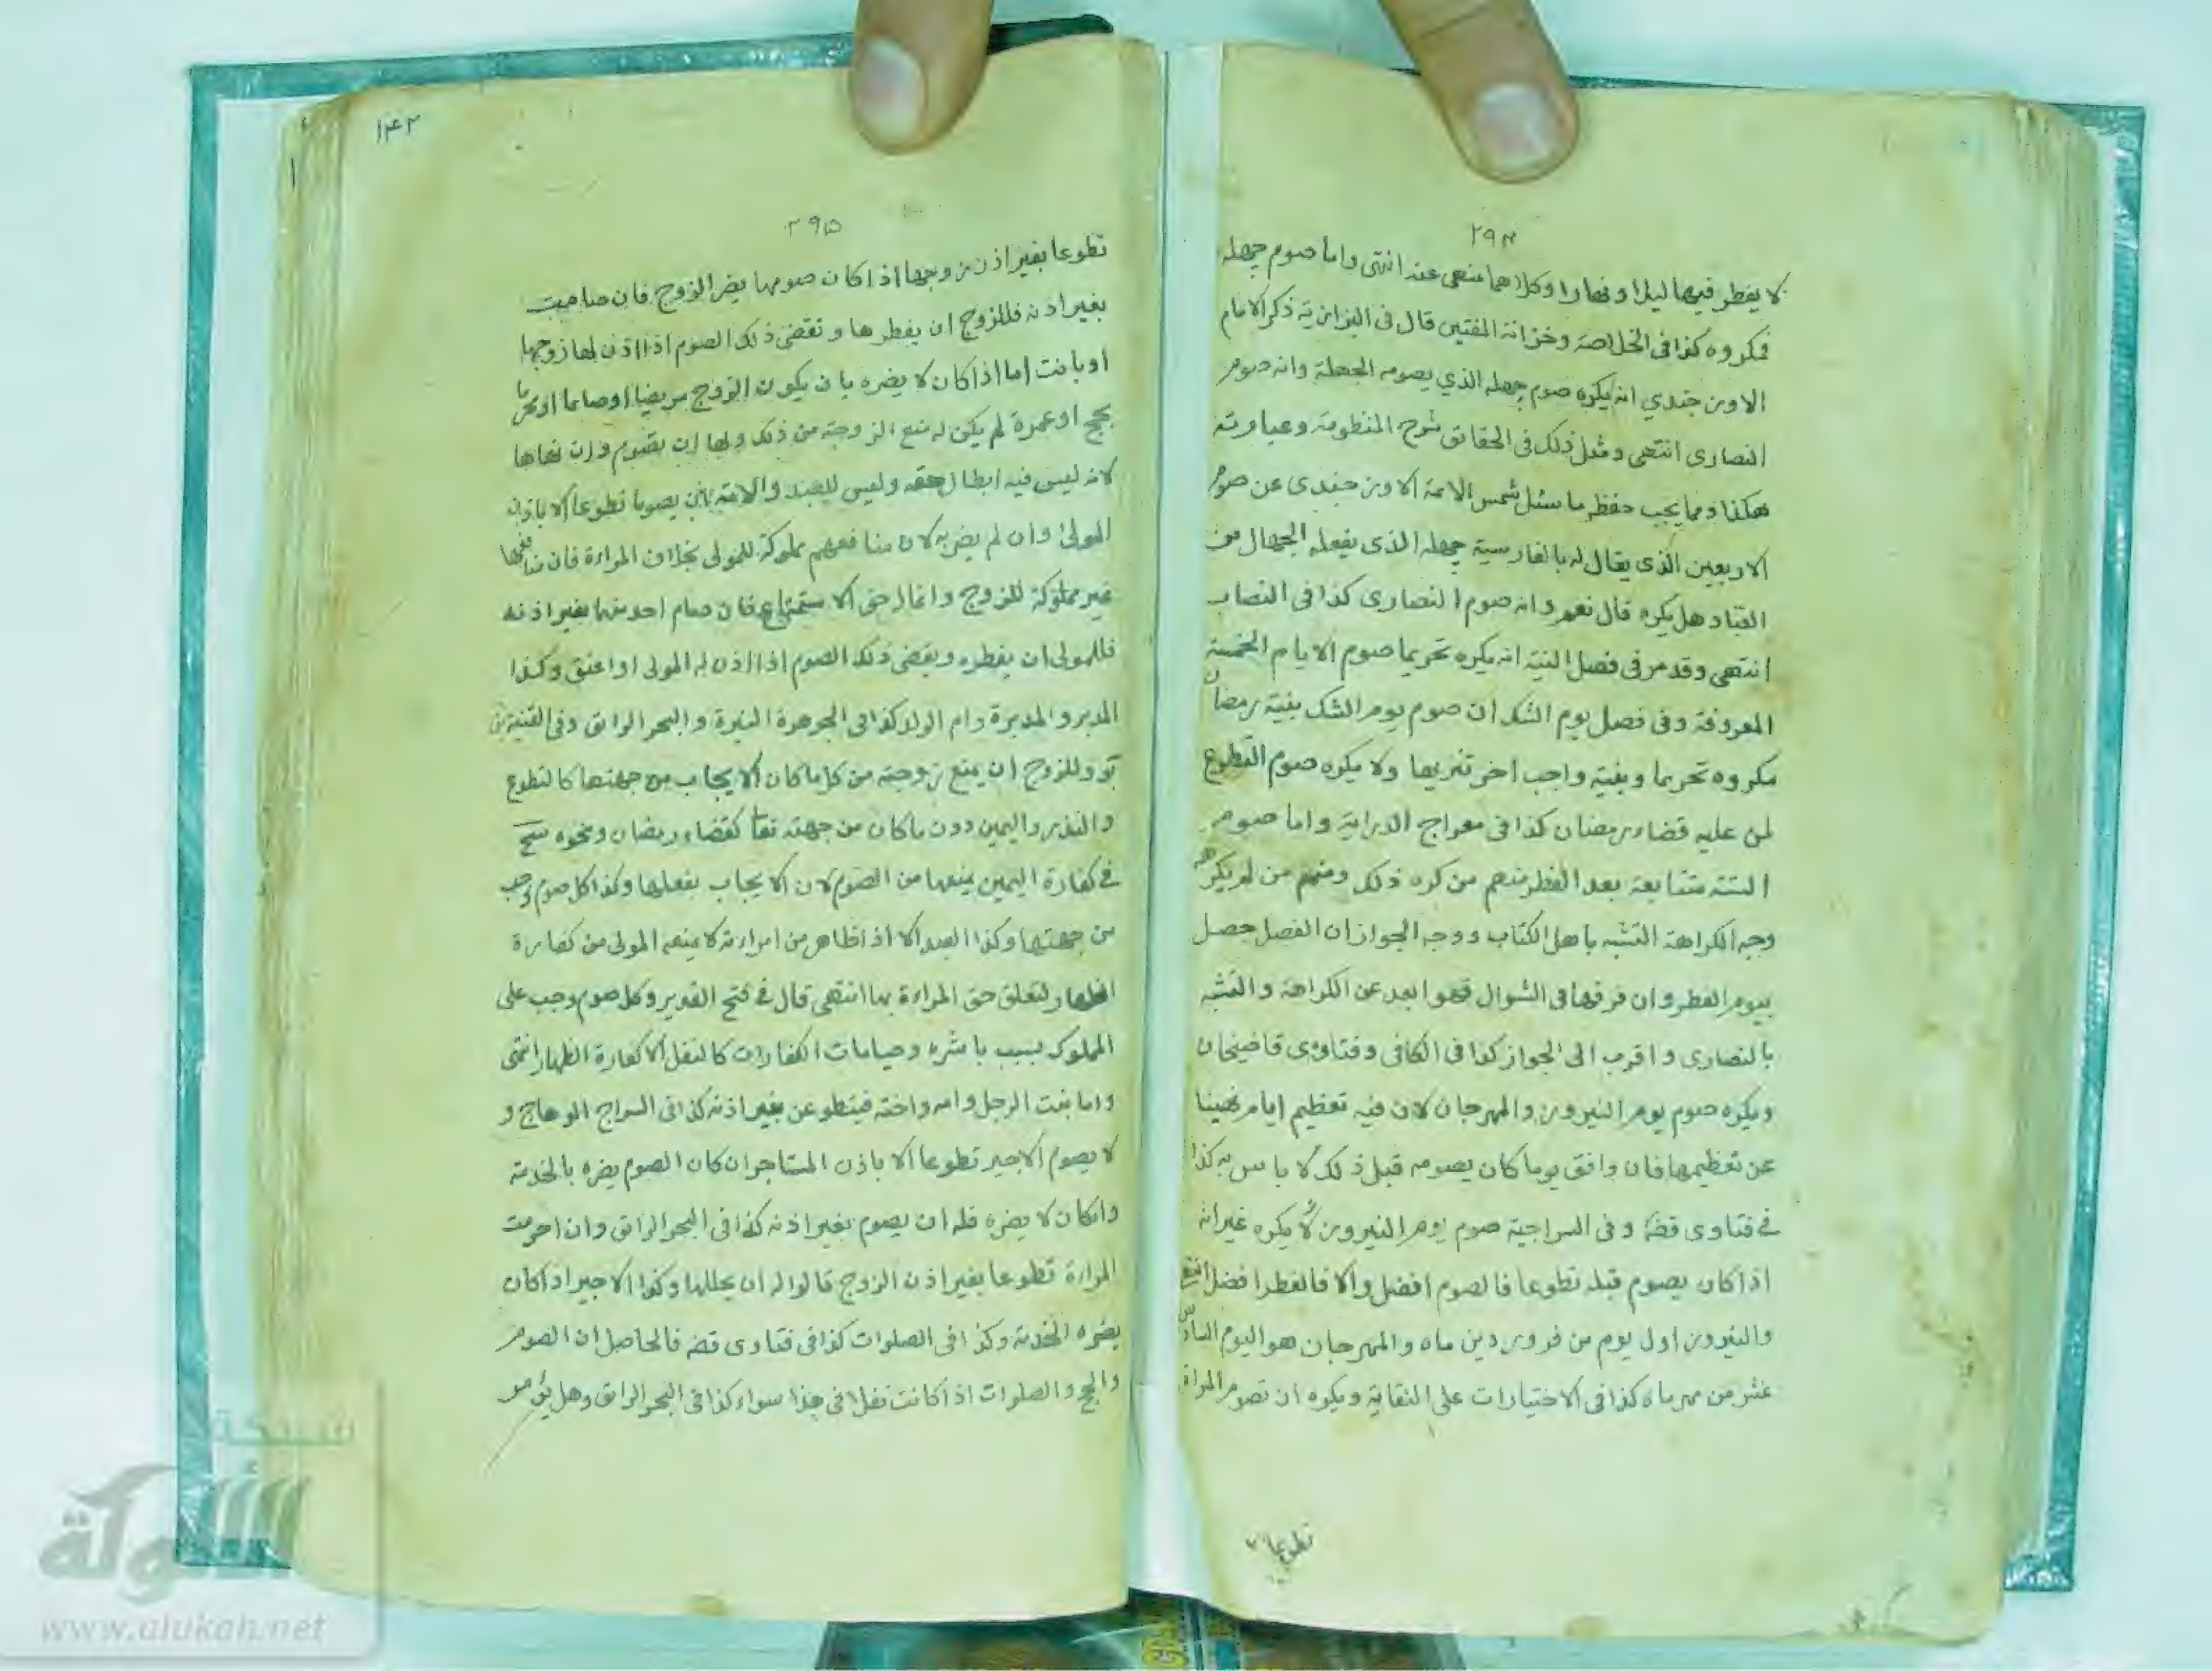 ٢٩٤
لا يفطر فيها ليلا و نهارا وكلاهما منهي عنه انتهى واما صوم چهله
فمكروه كذا في الخلاصة وخزانة المفتين قال في البزازية ذكر الامام
الاوزجندي انه يكره صوم چهله الذي يصومه الجهلة وانه صوم
النصارى انتهى ومثل ذلك في الحقائق شرح المنظومة وعبارته
هكذا ومما يجب حفظه ما سئل شمس الائمة الاوزجندى عن صوم
الاربعين الذى يقال له بالفارسية چهله الذى يفعله الجهال من
العباد هل يكره قال نعم وانه صوم النصارى كذا فى النصاب
انتهى وقد مر فى فصل النية انه يكره تحريما صوم الايام الخمسة
المعروفة وفى فصل يوم الشك ان صوم يوم الشك بنية رمضان
مكروه تحريما وبنية واجب اخر تنزيها ولا يكره صوم التطوع
لمن عليه قضاء رمضان كذا فى معراج الدراية واما صوم
الستة متتابعة بعد الفطر منهم من كره ذلك ومنهم من لم يكرهه
وجه الكراهة التشبه باهل الكتاب ووجه الجواز ان الفصل حصل
بيوم الفطر وان فرقها فى الشوال فهو ابعد عن الكراهة والتشبه
بالنصارى واقرب الى الجواز كذا فى الكافى وفتاوى قاضيخان
ويكره صوم يوم النيروز والمهرجان لان فيه تعظيم ايام نهينا
عن تعظيمها فان وافق يوما كان يصومه قبل ذلك لا باس به كذا
فى فتاوى قضه وفى السراجية صوم يوم النيروز لا يكره غير انه
اذا كان يصوم قبله تطوعا فالصوم افضل والا فالفطر افضل انتهى
والنيروز اول يوم من فروردين ماه والمهرجان هو اليوم السادس
عشر من مهرماه كذا فى الاختيارات على النقاية ويكره ان تصوم المراة
تطوعا
١٤٢
٢٩٥
تطوعا بغير اذن زوجها اذا كان صومها يضر الزوج فان صامت
بغير اذنه فللزوج ان يفطرها وتقضى ذلك الصوم اذا اذن لها زوجها
او بانت اما اذا كان لا يضره بان يكون الزوج مريضا او صائما او محرما
بحج او عمرة لم يكن له منع الزوجة من ذلك ولها ان تصوم وان نهاها
لانه ليس فيه ابطال حقه وليس للعبد والامة بان يصوما تطوعا الا باذن
المولى وان لم يضر به لان منافعهم مملوكة للمولى بخلاف المراءة فان منافعها
غير مملوكة للزوج وانما له حق الاستمتاع فان صام احد منهما بغير اذنه
فللمولى ان يفطره ويقضى ذلك الصوم اذا اذن له المولى او اعتق وكذا
المدبر والمدبرة وام الولد كذا فى الجوهرة النيرة والبحر الرائق وفى القنية
وللزوج ان يمنع زوجته من كل ما كان الايجاب من جهتها كالتطوع
والنذر واليمين دون ما كان من جهته تعا كقضاء رمضان ونحوه
فى كفارة اليمين يمنعها من الصوم لان الايجاب بفعلها وكذا كل صوم وجب
من جهتها وكذا العبد الا اذا ظاهر من امراءته لا يمنعه المولى من كفارة
الظهار لتعلق حق المراءة بها انتهى قال فى فتح القدير وكل صوم وجب على
المملوك بسبب باشره وصيامات الكفارات كالنفل الا كفارة الظهار انتهى
واما بنت الرجل وامه واخته فيتطوعن بغير اذنه كذا فى السراج الوهاج و
لا يصوم الاجير تطوعا الا باذن المستاجر ان كان الصوم يضره بالخدمة
وان كان لا يضره فله ان يصوم بغير اذنه كذا فى البحر الرائق وان احرمت
المراءة تطوعا بغير اذن الزوج قالوا له ان يحللها وكذا الاجير اذا كان
يضره الخدمة وكذا فى الصلوات كذا فى فتاوى قضه فالحاصل ان الصوم
والحج والصلوات اذا كانت نفلا فى هذا سواء كذا فى البحر الرائق وهل يؤمر
شبكة
الألوكة
www.alukah.net